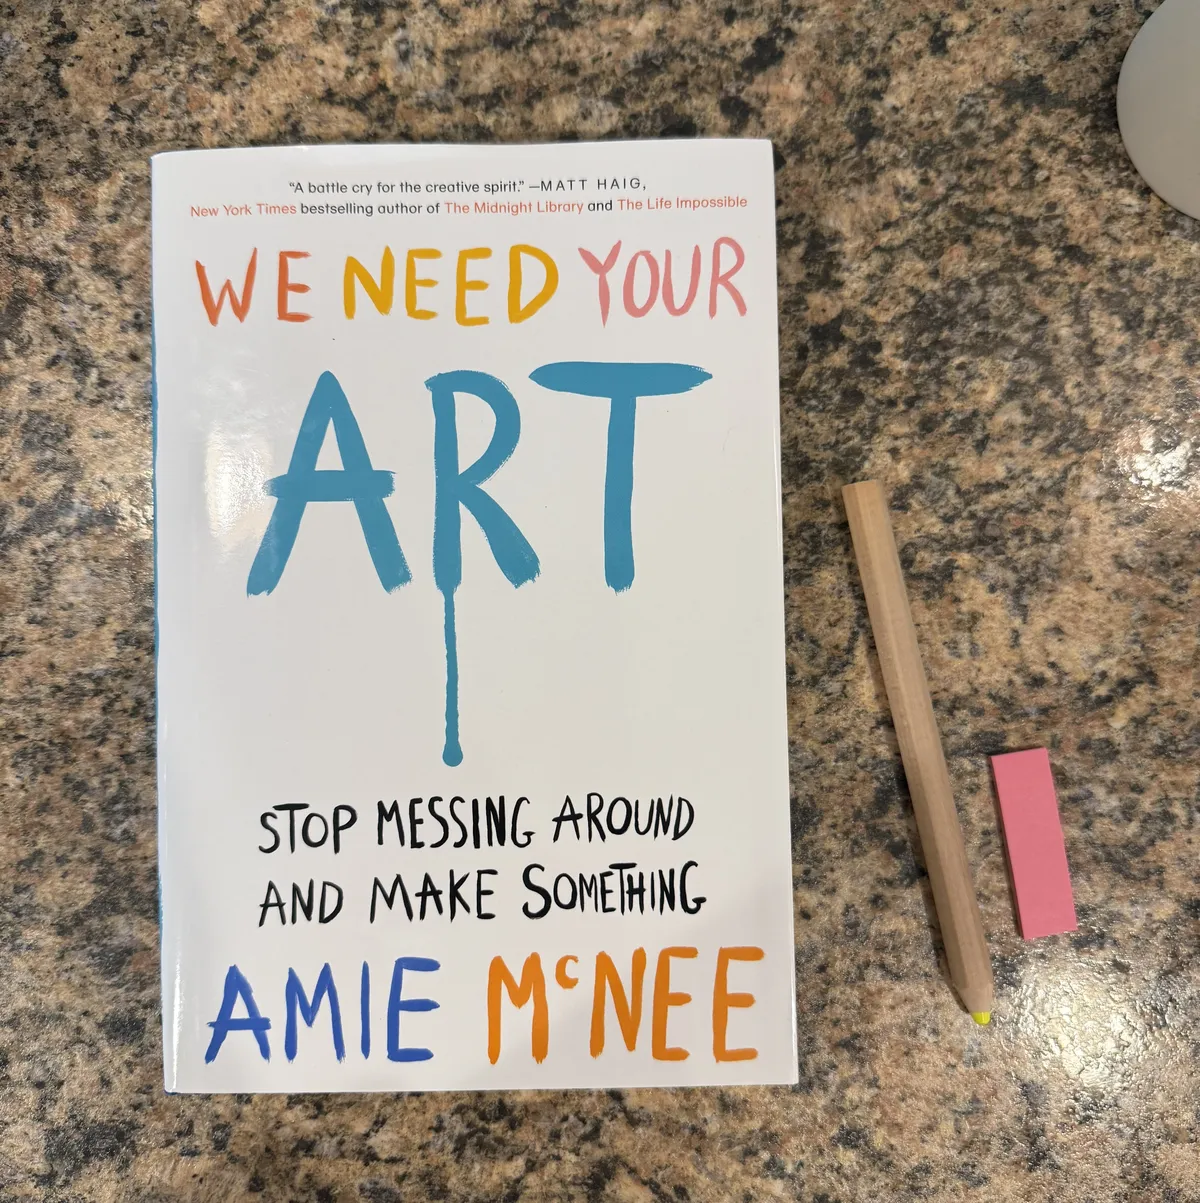 “A battle cry for the creative spirit.” —MATT HAIG,
New York Times bestselling author of The Midnight Library and The Life Impossible
WE NEED YOUR
ART
STOP MESSING AROUND
AND MAKE SOMETHING
AMIE McNEE